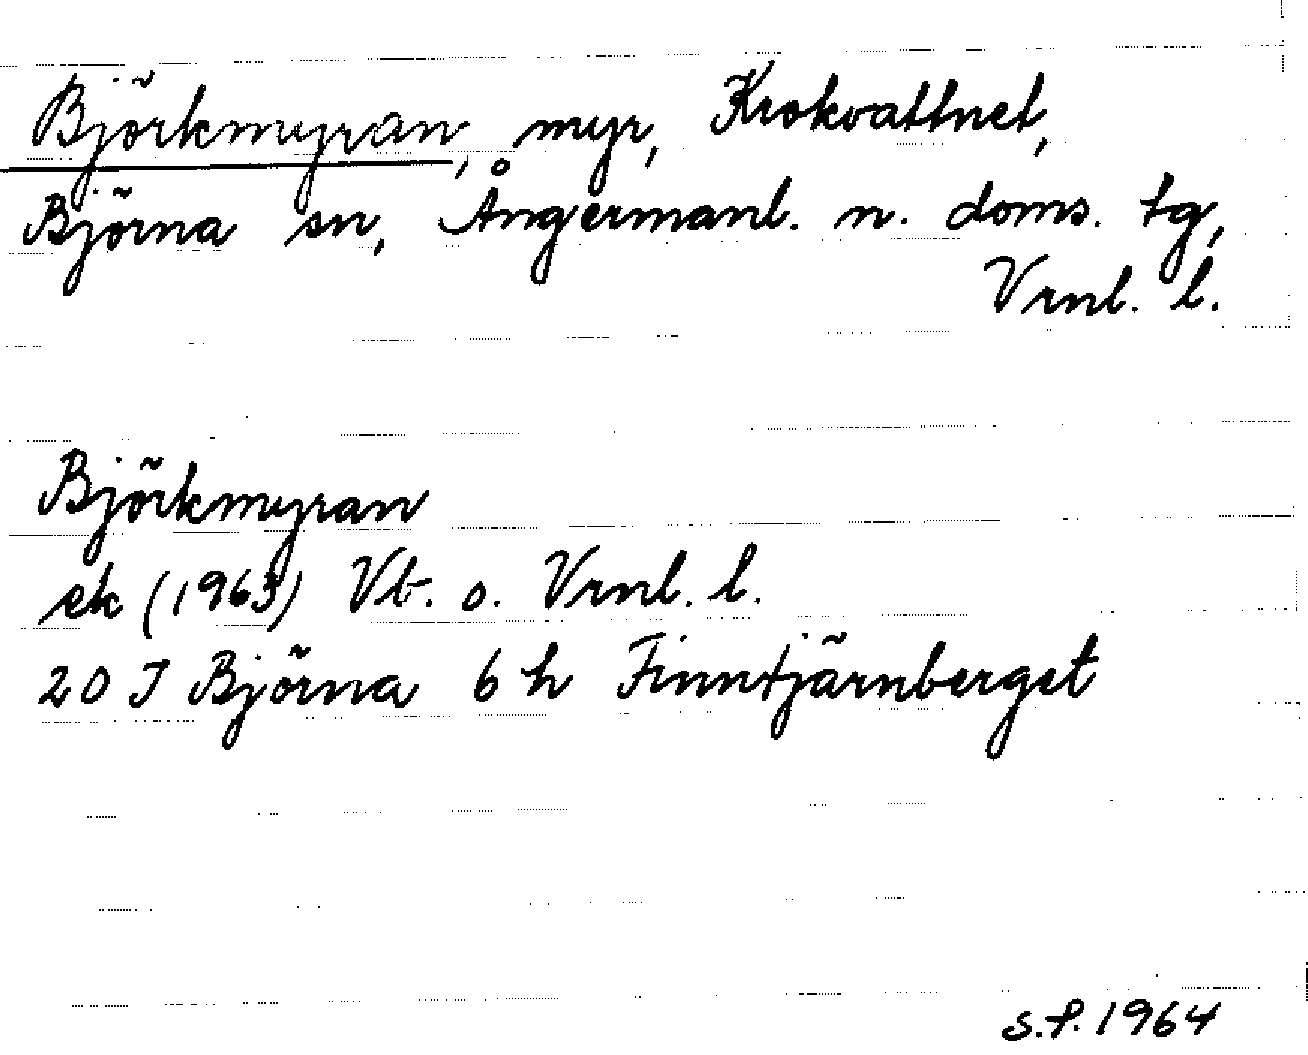 Björkmyran, myr, Krokvattnet,
Björna sn, Ångermanl. n. doms. tg,
Vrnl. l.
Björkmyran
ek (1963) Vb. o. Vrnl. l.
20 J Björna 6 h Finntjärnberget
S.P. 1964